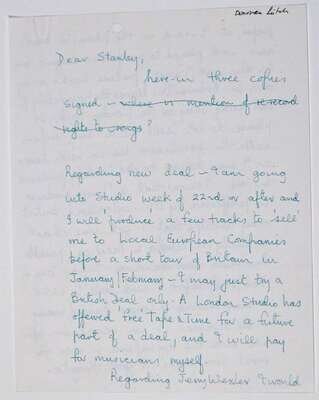 Dear Stanley,
here-in three copies
signed – where is mention of record
rights to songs?
Regarding new deal – I am going
into Studio week of 22nd or after and
I will 'produce' a few tracks to 'sell'
me to Local European Companies
before a short tour of Britain in
January/February – I may just try a
British deal only. A London Studio has
offered 'free' Tape & Time for a future
part of a deal, and I will pay
for musicians myself.
Regarding Jerry Wexler I would